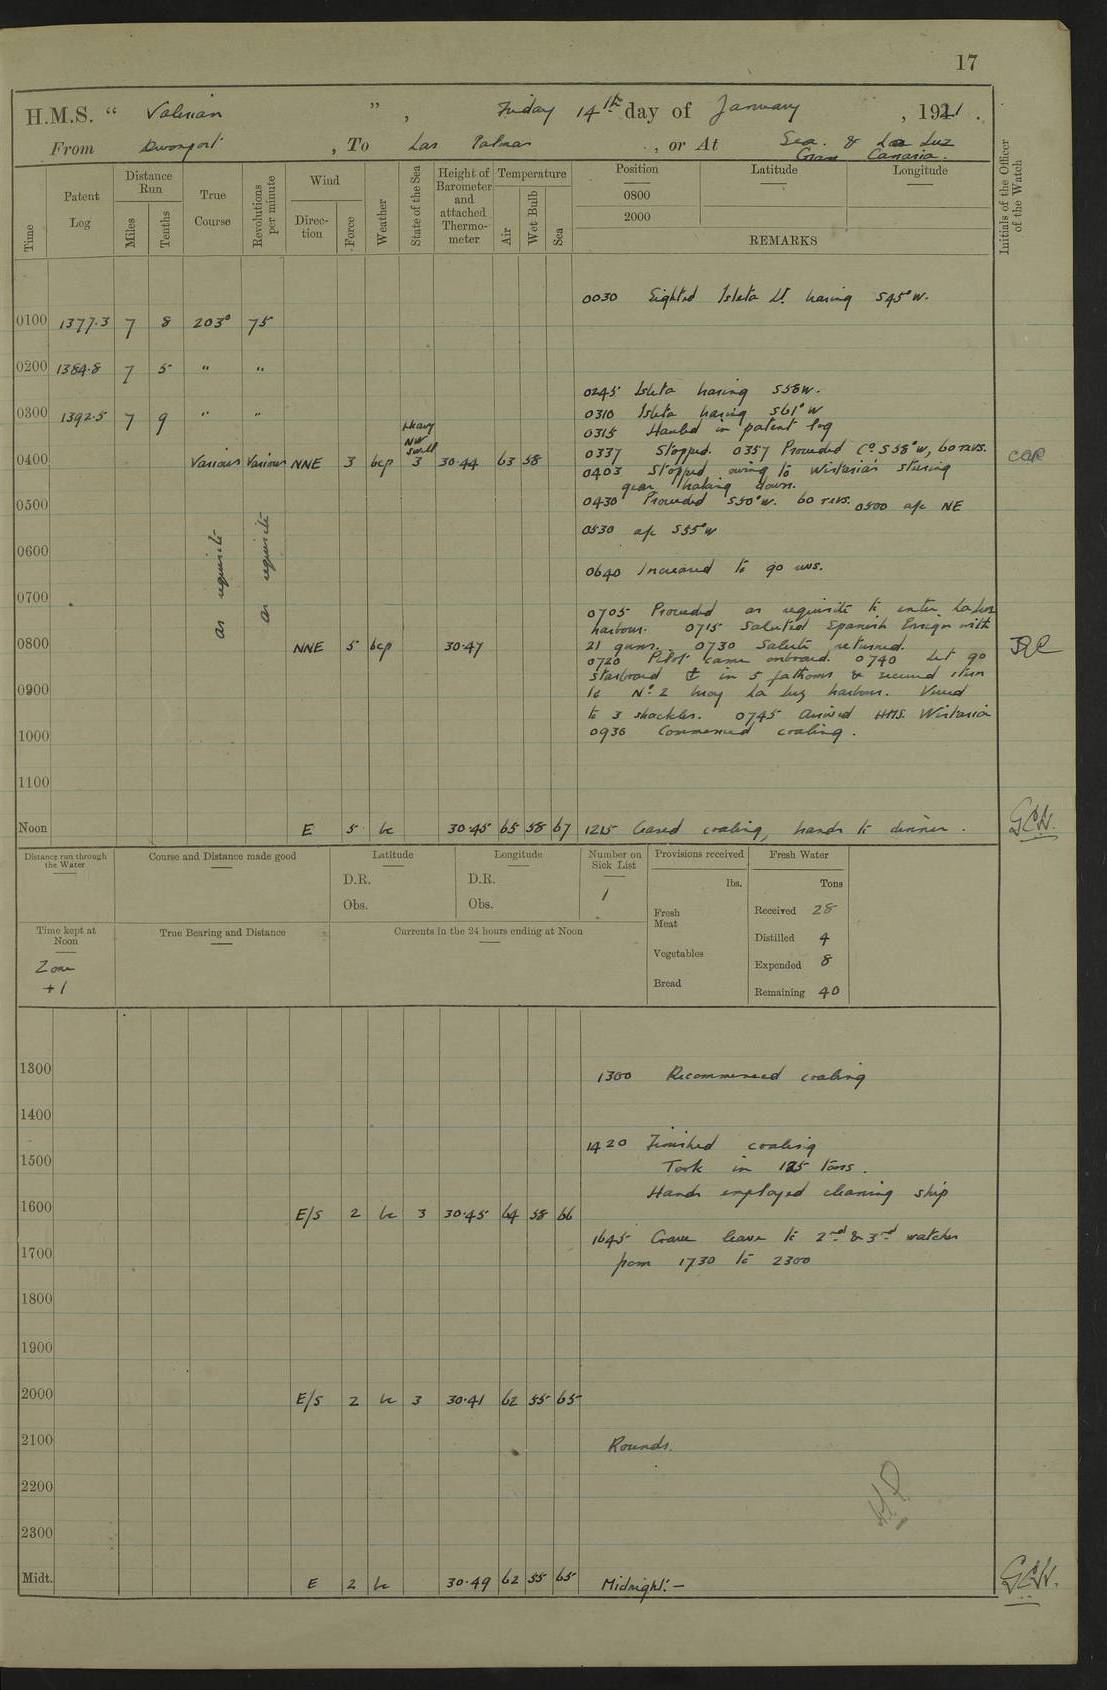 17
H.M.S. “ Valerian ”, Friday 14th day of January, 1921.
From Devonport, To Las Palmas, or At Sea. & La Luz
Gran Canaria.
Time
Patent Log
Distance Run
Miles
Tenths
True Course
Revolutions per minute
Wind
Direction
Force
Weather
State of the Sea
Height of Barometer and attached Thermometer
Temperature
Air
Wet Bulb
Sea
Position
Latitude
Longitude
0800
2000
REMARKS
Initials of the Officer of the Watch
0030 Sighted Isleta Lt. bearing S45°W.
0100 1377.3 7 8 203° 75
0200 1384.8 7 5 " "
0245 Isleta bearing S58W.
0300 1392.5 7 9 " "
0310 Isleta bearing S61°W
0315 Hauled in patent log
Heavy NW Swell
0337 Stopped. 0357 Proceeded Co S58°W, 60 revs.
0400 Various Various NNE 3 bcp 3 30.44 63 58
0403 Stopped owing to Wistaria's steering
gear breaking down.
0430 Proceeded S50°W. 60 revs. 0500 a/c NE
0500
as requisite
as requisite
0530 a/c S55°W
0600
0640 Increased to 90 revs.
0700
0705 Proceeded as requisite to enter La Luz
harbour. 0715 Saluted Spanish Ensign with
21 guns. 0730 Salute returned.
0800 NNE 5 bcp 30.47
0720 Pilot came onboard. 0740 Let go
starboard ⚓ in 5 fathoms & secured stern
0900
to No. 2 buoy La Luz harbour. Veered
to 3 shackles. 0745 Arrived HMS. Wistaria
0930 Commenced coaling.
1000
1100
Noon E 5 bc 30.45 65 58 67 1215 Ceased coaling, hands to dinner. GCW.
Distance run through the Water
Course and Distance made good
Latitude
D.R.
Obs.
Longitude
D.R.
Obs.
Number on Sick List
1
Provisions received
lbs.
Fresh Meat
Vegetables
Bread
Fresh Water
Tons
Received 28
Distilled 4
Expended 8
Remaining 40
Time kept at Noon
Zone
+1
True Bearing and Distance
Currents in the 24 hours ending at Noon
1300
1300 Recommenced coaling
1400
1420 Finished coaling
1500
Took in 125 tons.
Hands employed cleaning ship
1600 E/S 2 bc 3 30.45 64 58 66
1645 Gave leave to 2nd & 3rd watches
1700
from 1730 to 2300
1800
1900
2000 E/S 2 bc 3 30.41 62 55 65
2100
Rounds.
2200
2300
Midt. E 2 bc 30.49 62 55 65 Midnight:— GCW.